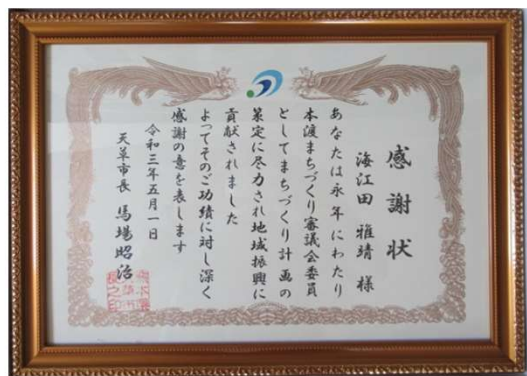 感謝状
海江田 雅靖 様
あなたは永年にわたり
本渡まちづくり審議会委員
としてまちづくり計画の
策定に尽力され地域振興に
貢献されました
よってそのご功績に対し深く
感謝の意を表します
令和三年五月一日
天草市長 馬場昭治